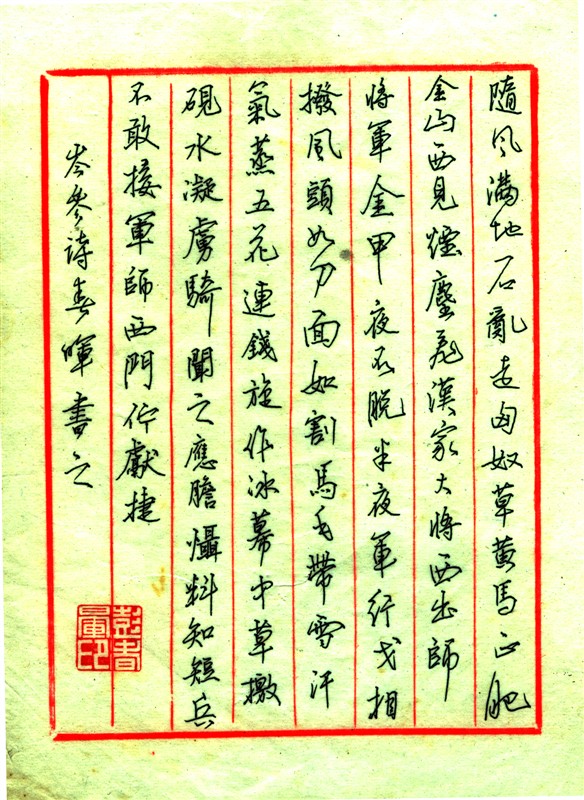 隨風滿地石亂走匈奴草黃馬正肥
金山西見煙塵飛漢家大將西出師
將軍金甲夜不脫半夜軍行戈相
撥風頭如刀面如割馬毛帶雪汗
氣蒸五花連錢旋作冰幕中草檄
硯水凝虜騎聞之應膽懾料知短兵
不敢接軍師西門佇獻捷
岑參詩春暉書之
彭春暉印